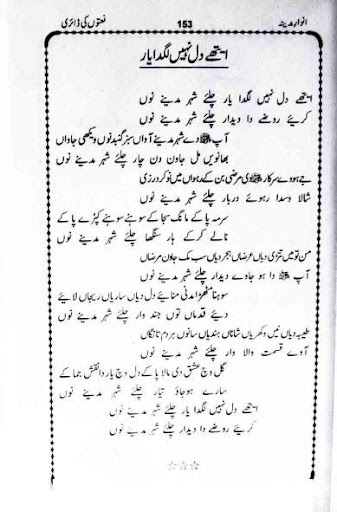 انوار مدینہ 153 نعتوں کی ڈائری
ایتھے دل نہیں لگدا یار
ایتھے دل نہیں لگدا یار چلئے شہر مدینے نوں
کریئے روضے دا دیدار چلئے شہر مدینے نوں
آپ ﷺ دے شہر مدینے آواں سبز گنبد نوں ویکھی جاواں
بھانویں مل جاون دن چار چلئے شہر مدینے نوں
جے ہووے سرکار ﷺ دی مرضی بن کے رہواں میں نوکر درزی
شالا وسدا رہوئے دربار چلئے شہر مدینے نوں
سرمہ پا کے مانگ سجا کے سوہنے سوہنے کپڑے پا کے
نالے کرکے ہار سنگھا چلئے شہر مدینے نوں
من تو میں تتڑی دیاں عرضاں ہجر دیاں سب مک جاون مرضاں
آپ ﷺ دا ہو جاوے دیدار چلئے شہر مدینے نوں
سوہنا مدنی منائیے دل دیاں ساریاں ریجاں لائیے
دیئے قدماں توں جند وار چلئے شہر مدینے نوں
طیبہ دیاں نیں وکھریاں شاناں ہندیاں سانوں ہر دم تانگاں
آوے قسمت والا وار چلئے شہر مدینے نوں
گل وچ عشق دی مالا پا کے دل وچ یار دا نقش جما کے
سارے ہو جاؤ تیار چلئے شہر مدینے نوں
ایتھے دل نہیں لگدا یار چلئے شہر مدینے نوں
کریئے روضے دا دیدار چلئے شہر مدینے نوں